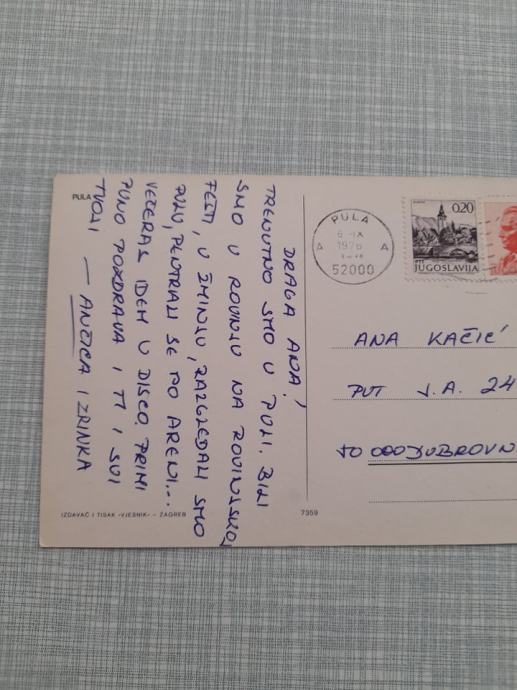 PULA
DRAGA ANA!
TRENUTNO SMO U PULI. BILI
SMO U ROVINJU NA ROVINJSKOJ
FEŠTI, U ŽMINJU, RAZGLEDALI SMO
PULU, PENTRALI SE PO ARENI...
VEČERAS IDEM U DISCO. PRIMI
PUNO POZDRAVA I TI I SVI
TVOJI
— ANČICA I ZRINKA
IZDAVAČ I TISAK »VJESNIK« – ZAGREB
7359
PULA
6 -IX
1976
A A
52000
0.20
JUGOSLAVIJA
ANA KAČIĆ
PUT J.A. 24
50 000 DUBROVN